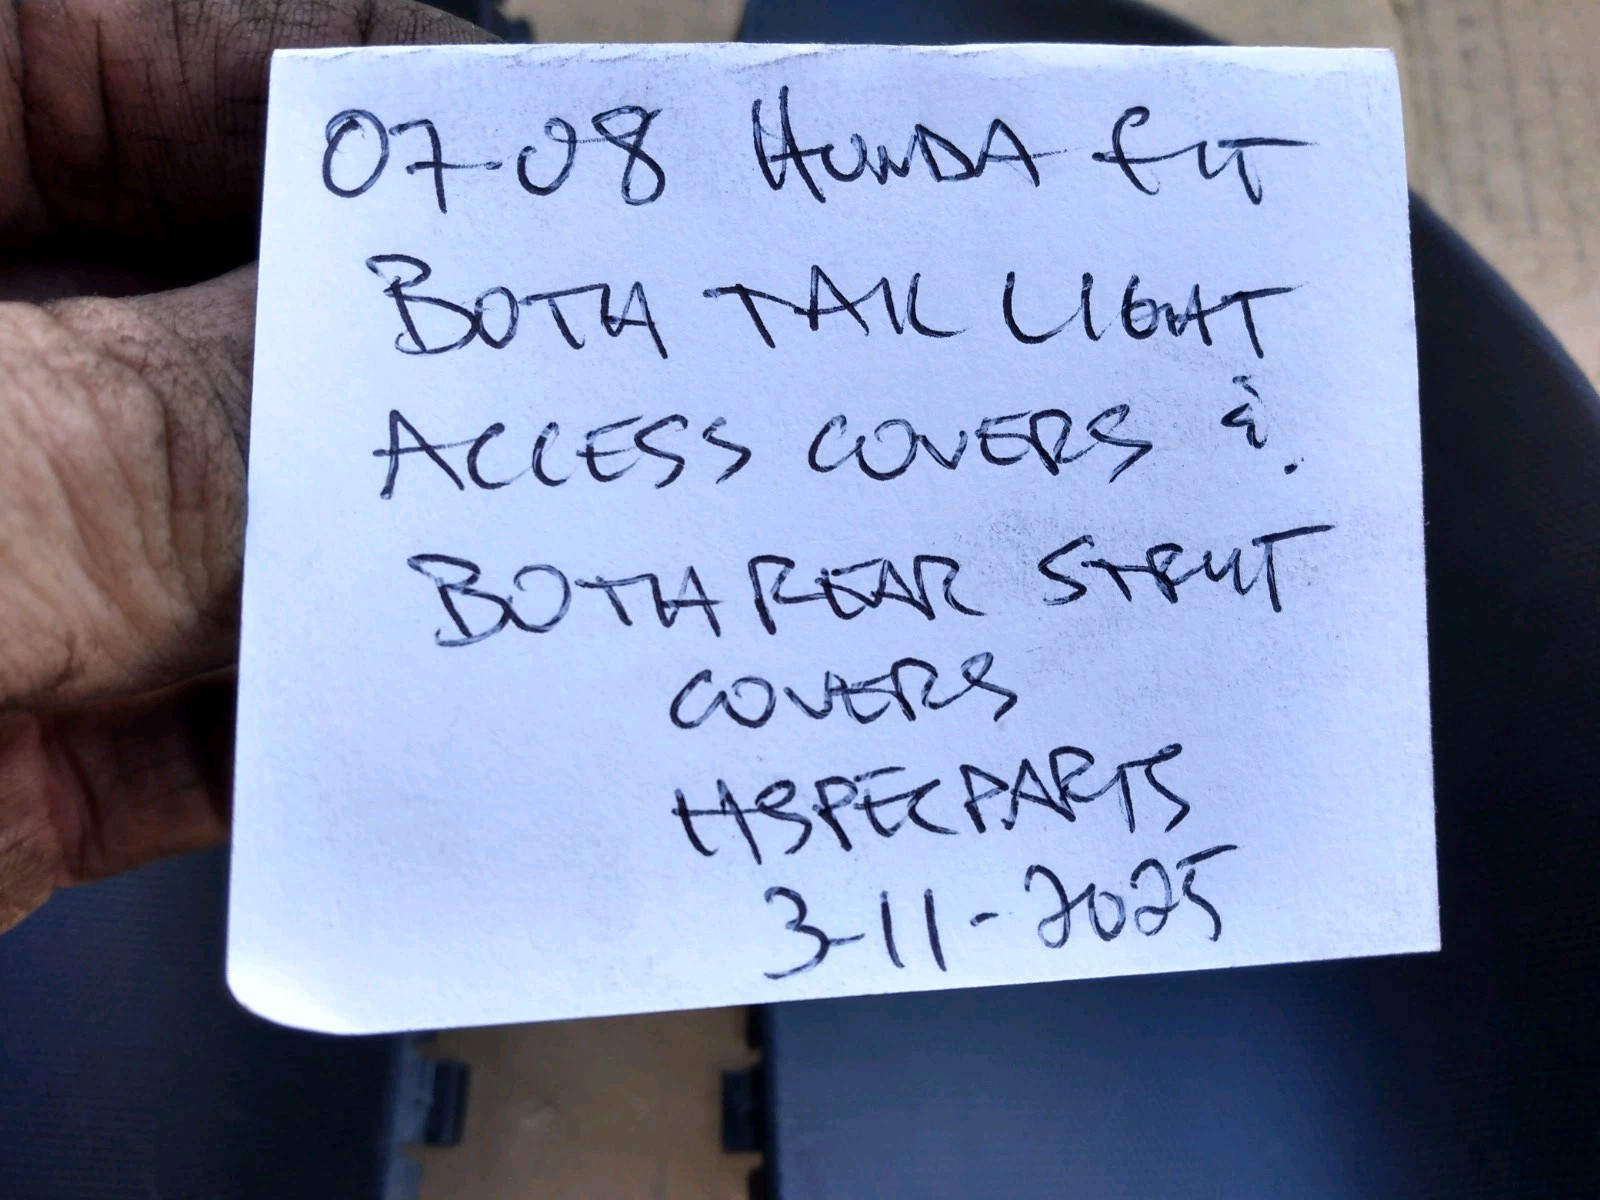 07-08 HONDA fit
BOTH TAIL LIGHT
ACCESS COVERS &.
BOTH REAR STRUT
COVERS
HSPECPARTS
3-11-2025